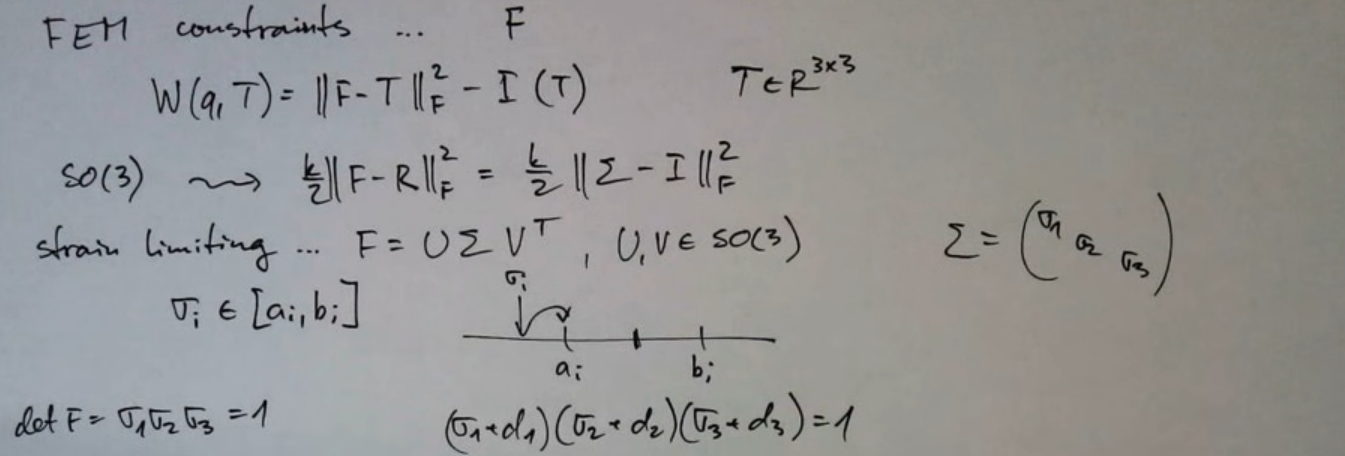 FEM constraints ... F
W(q,T) = ||F-T||²_F - I(T)   T ∈ R^{3×3}
SO(3) ⇝ k/2||F-R||²_F = k/2 ||Σ-I||²_F
strain limiting ... F = U Σ V^T , U,V ∈ SO(3)   Σ = (σ₁ σ₂ σ₃)
σᵢ
σᵢ ∈ [aᵢ,bᵢ]
aᵢ   bᵢ
det F = σ₁σ₂σ₃ = 1   (σ₁+d₁)(σ₂+d₂)(σ₃+d₃) = 1